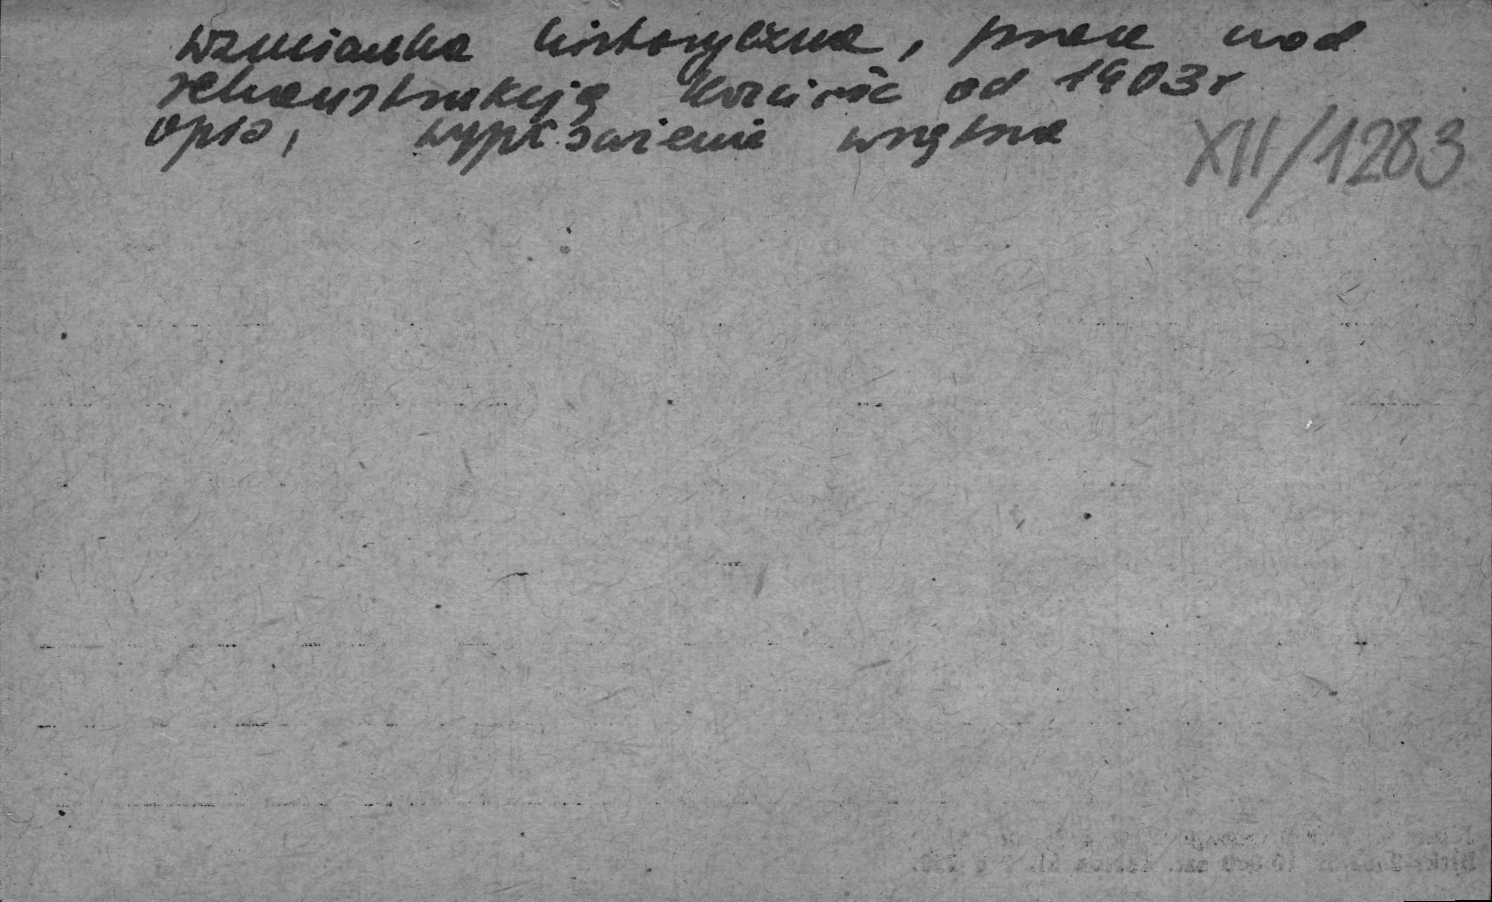 wzmianka historyczna, prace nad
rekonstrukcją kościoła od 1903r
opis, wyposażenie wnętrza
XII/1283